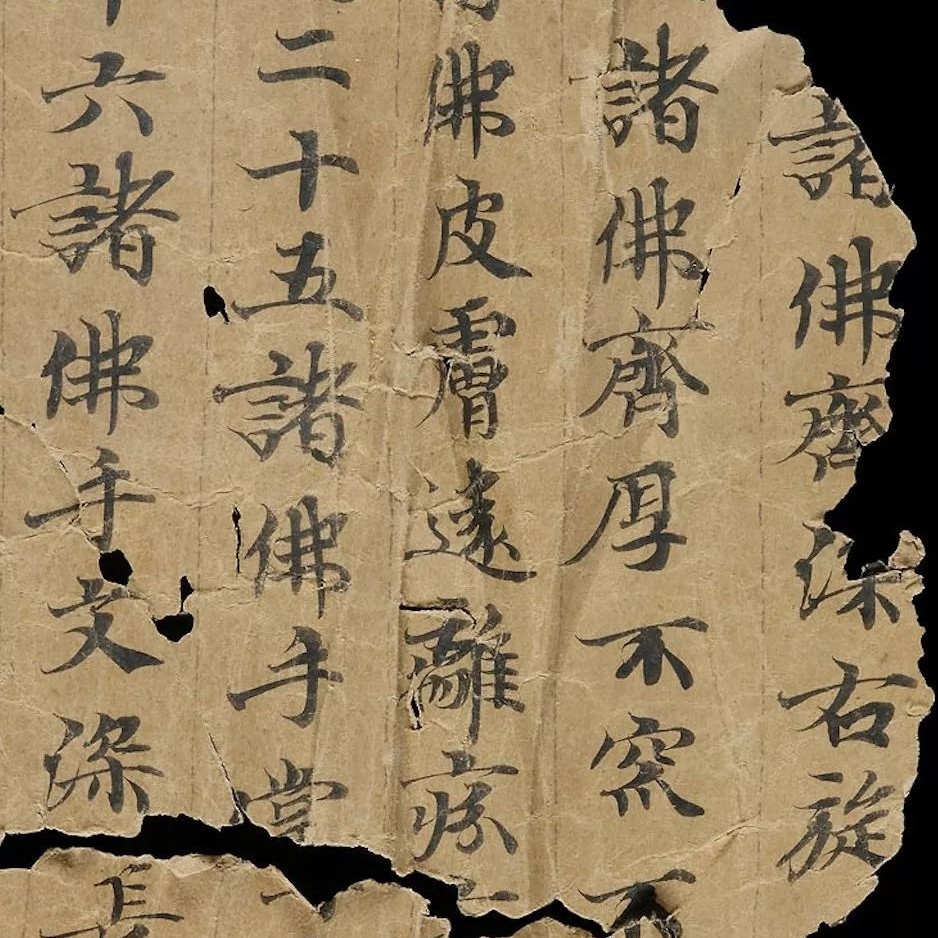 諸佛齊深右旋
諸佛齊厚不窊不
佛皮膚遠離疥
二十五諸佛手掌
六諸佛手文深長